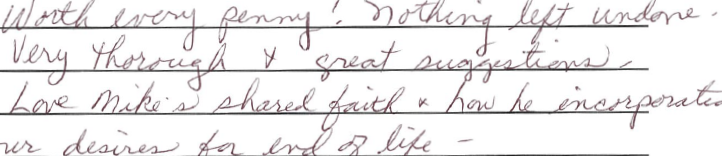 Worth every penny! Nothing left undone.
Very thorough & great suggestions.
Love Mike's shared faith & how he incorporates
our desires for end of life -